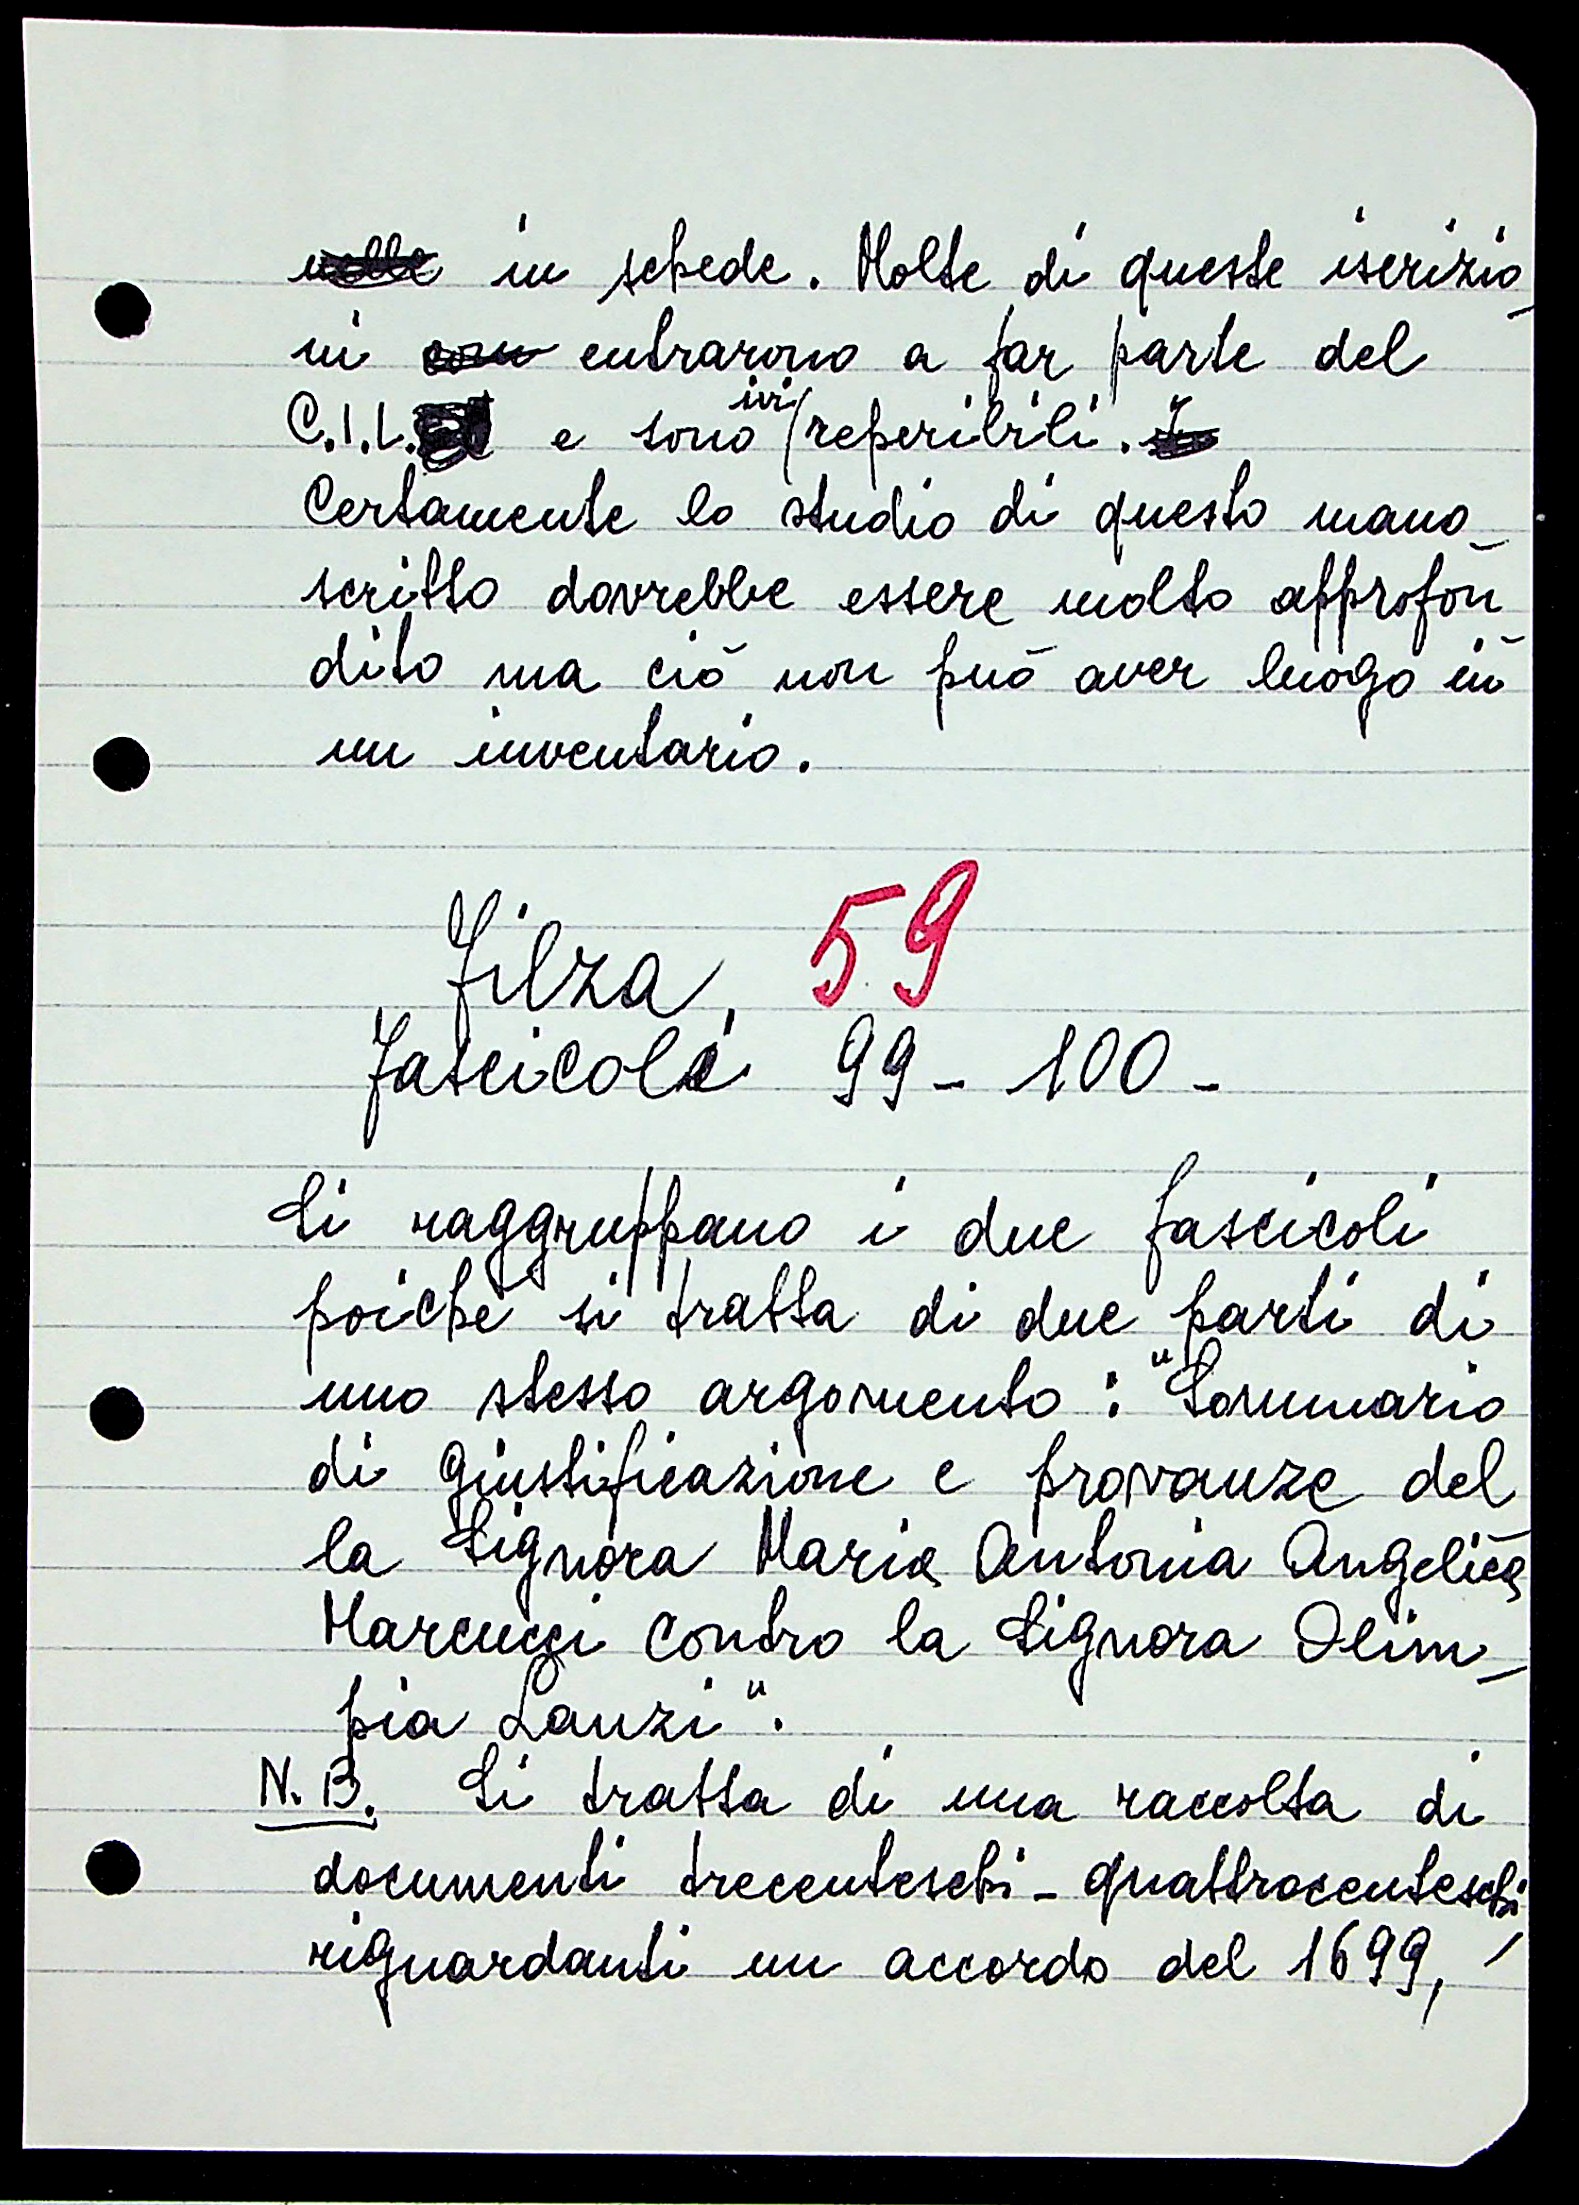 in schede. Molte di queste iscrizio_
ni entrarono a far parte del
C.I.L. e sono ivi reperibili.
Certamente lo studio di questo mano_
scritto dovrebbe essere molto approfon_
dito ma ciò non può aver luogo in
un inventario.
Filza 59
Fascicoli 99 - 100 -
Si raggruppano i due fascicoli
poiché si tratta di due parti di
uno stesso argomento: "Sommario
di giustificazione e provanze del_
la Signora Maria Antonia Angelica
Marcucci contro la Signora Olim_
pia Lanzi".
N.B. Si tratta di una raccolta di
documenti trecenteschi - quattrocenteschi
riguardanti un accordo del 1699,